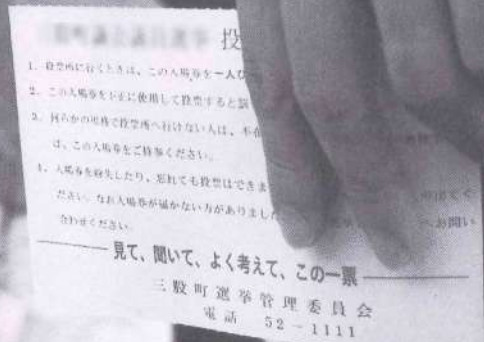 投
1. 投票所に行くときは、この入場券を一人ひ
2. この入場券を不正に使用して投票すると罰
3. 何らかの理由で投票所へ行けない人は、不在
は、この入場券をご持参ください。
4. 入場券を紛失したり、忘れても投票はできま
ださい。なお入場券が届かない方がありました お問い
合わせください。
見て、聞いて、よく考えて、この一票
三股町選挙管理委員会
電話 52-1111